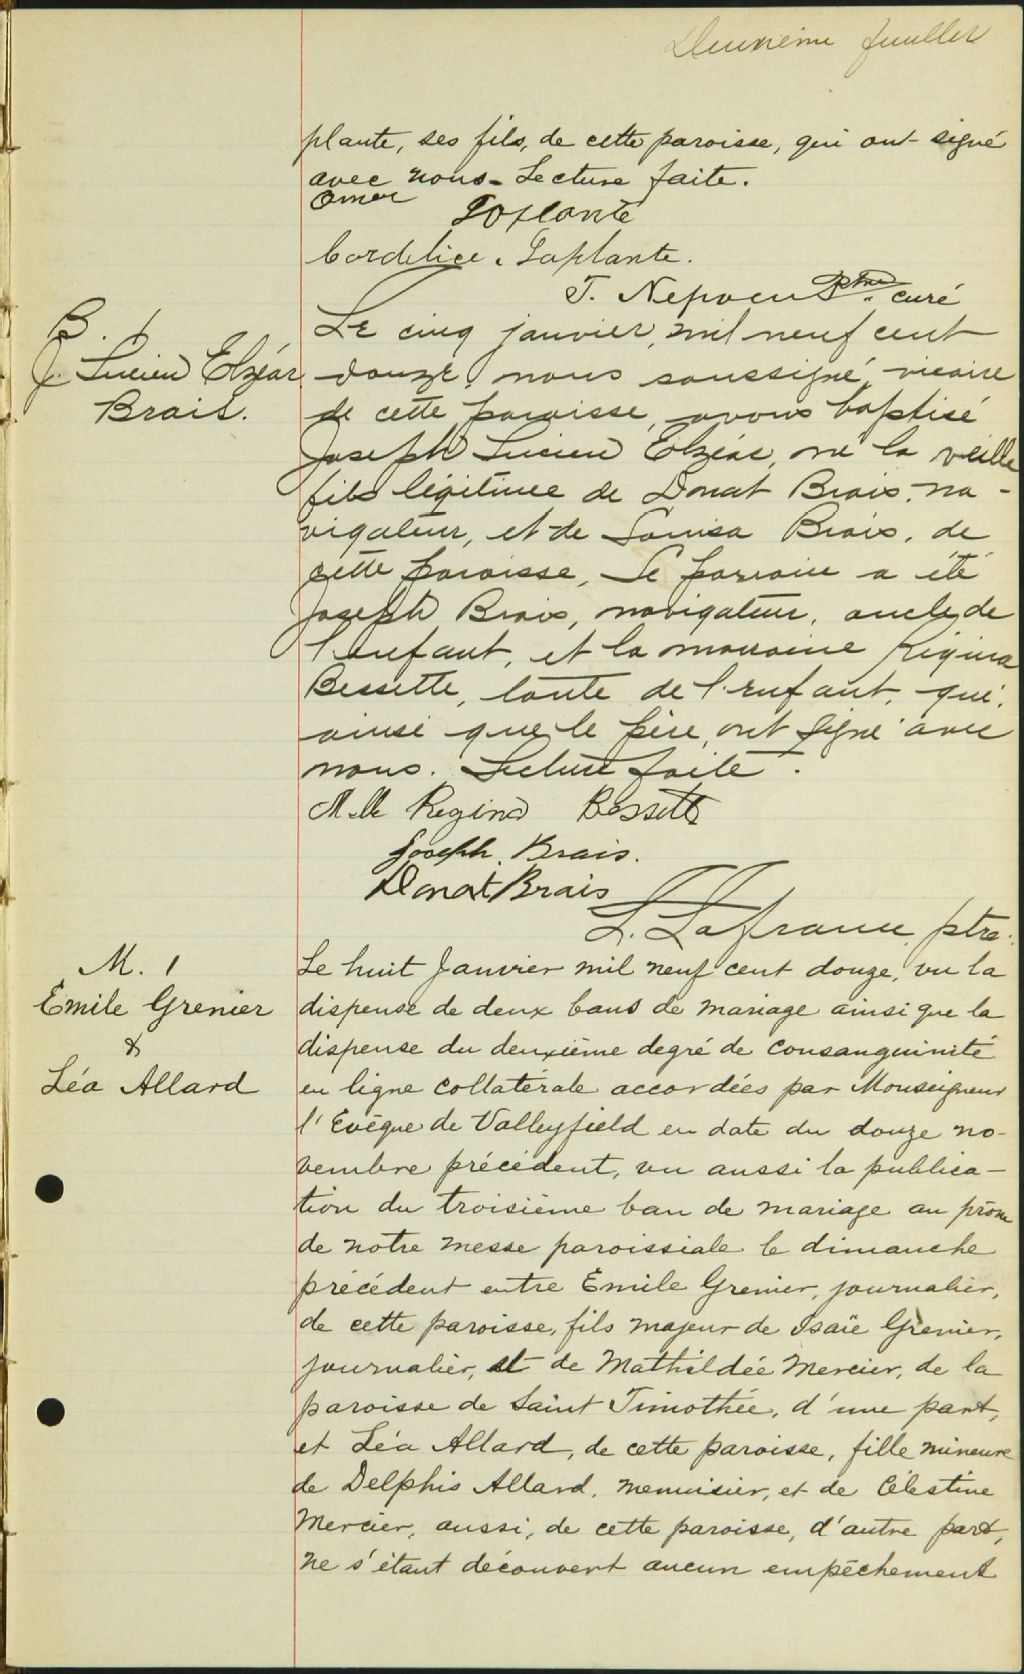 Deuxième feuillet
plante, ses fils, de cette paroisse, qui ont signé
avec nous - Lecture faite.
Omer Laplante
Cordélice Laplante.
T. Nepveu Ptre curé
B. 1
J. Lucien Elzéar
Brais.
Le cinq janvier, mil neuf cent
douze, nous soussigné, vicaire
de cette paroisse, avons baptisé
Joseph Lucien Elzéar, né la veille
fils légitime de Donat Brais, na-
vigateur, et de Louisa Brais, de
cette paroisse, Le parrain a été
Joseph Brais, navigateur, oncle de
l'enfant, et la marraine Régina
Bessette, tante de l'enfant, qui,
ainsi que le père, ont signé avec
nous. Lecture faite.
Mlle Regina Bessette
Joseph. Brais.
Donat Brais
L. Lafrance, ptre.
M. 1
Emile Grenier
&
Léa Allard
Le huit Janvier mil neuf cent douze, vu la
dispense de deux bans de mariage ainsi que la
dispense du deuxième degré de consanguinité
en ligne collatérale accordées par Monseigneur
l'Evêque de Valleyfield en date du douze no-
vembre précédent, vu aussi la publica-
tion du troisième ban de mariage au prône
de notre messe paroissiale le dimanche
précédent entre Emile Grenier, journalier,
de cette paroisse, fils majeur de Isaïe Grenier,
journalier, et de Mathildée Mercier, de la
paroisse de Saint Timothée, d'une part,
et Léa Allard, de cette paroisse, fille mineure
de Delphis Allard, menuisier, et de Célestine
Mercier, aussi, de cette paroisse, d'autre part,
ne s'étant découvert aucun empêchement